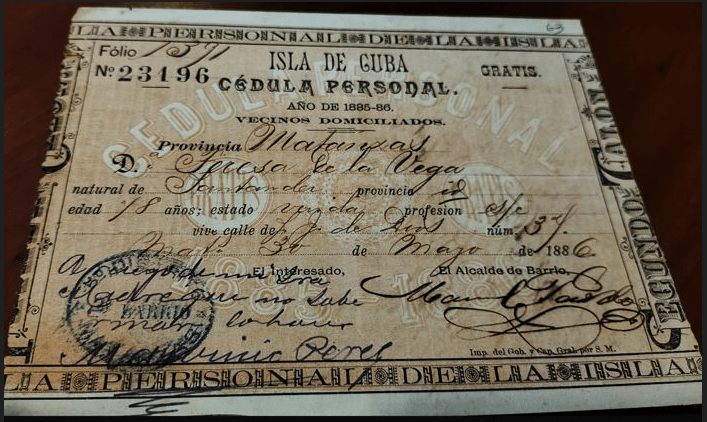 63
LA PERSONAL DE LA ISLA
Fólio 1371
Nº 23196
ISLA DE CUBA
GRATIS.
CÉDULA PERSONAL.
AÑO DE 1885-86.
VECINOS DOMICILIADOS.
CEDULA PERSONAL
Provincia Matanzas
D. Teresa de la Vega
natural de Santander provincia id
edad años; estado profesion s/c
vive calle de J. de Dios núm. 137.
Mat. 30 de Mayo de 1886.
El Interesado, El Alcalde de Barrio,
A ruego de mi Sra
Madre que no sabe
firmar lo hace
Perez
BARRIO
1885-1886
Imp. del Gob. y Cap. Gral. por S. M.
LA PERSONAL DE LA ISLA